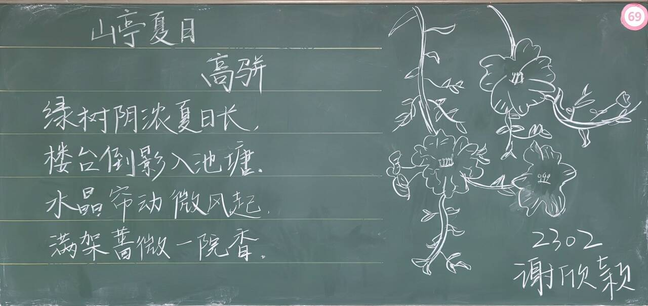 山亭夏日
高骈
绿树阴浓夏日长，
楼台倒影入池塘.
水晶帘动微风起.
满架蔷微一院香.
2302
谢欣颖
69